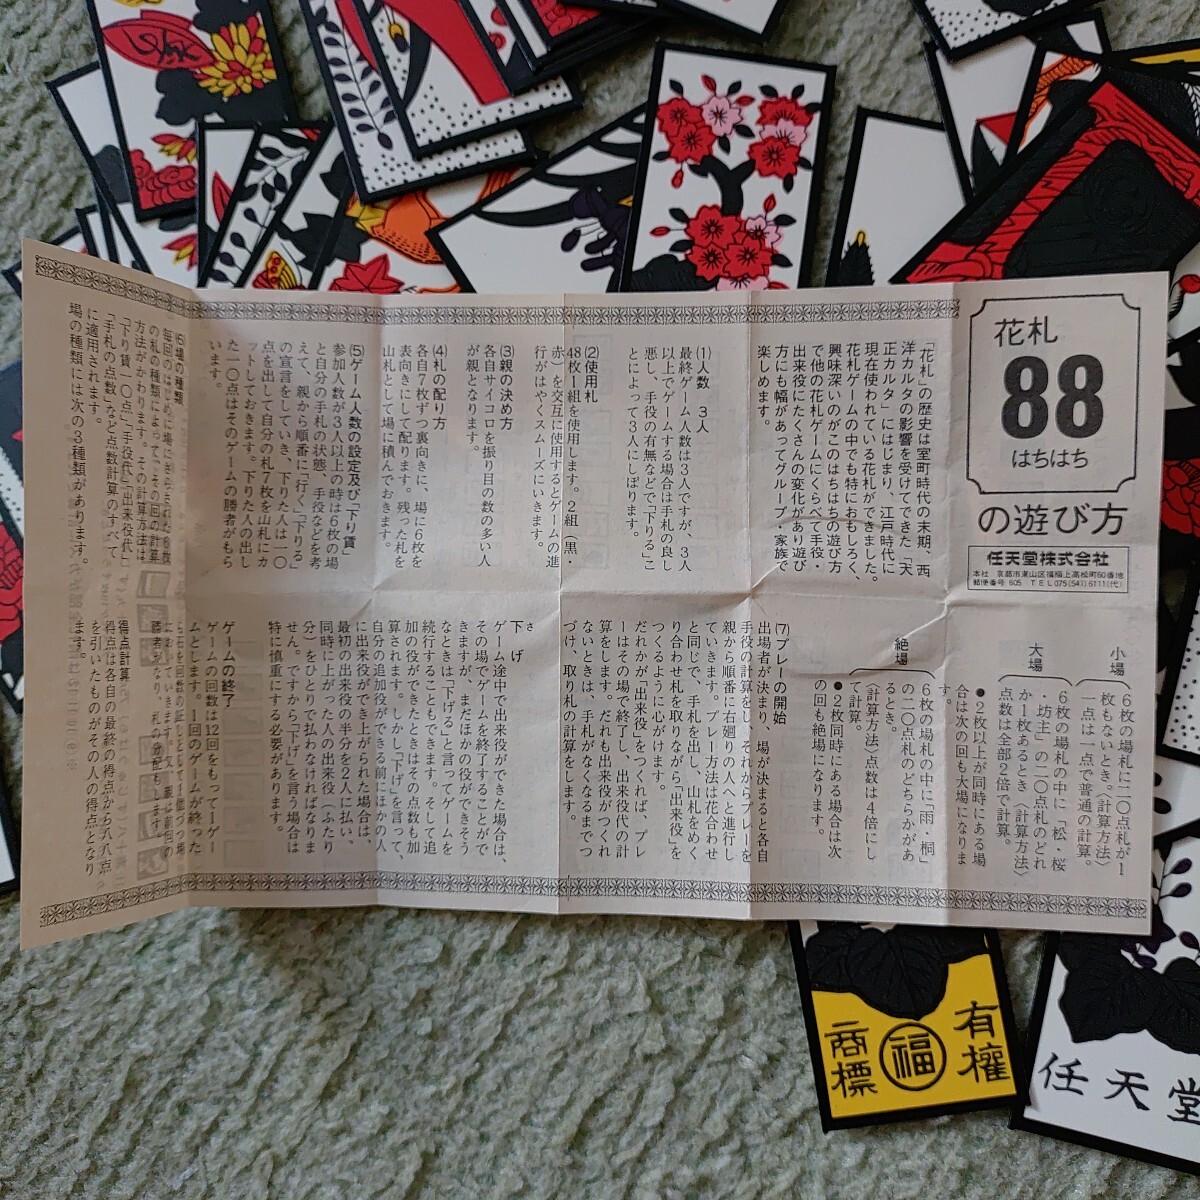 花札
88
はちはち
の遊び方
任天堂株式会社
本社 京都市東山区福稲上高松町60番地
郵便番号 605 TEL 075(541)6111(代)
「花札」の歴史は室町時代の末期、西
洋カルタの影響を受けてできた「天
正カルタ」にはじまり、江戸時代に
現在使われている花札ができました。
花札ゲームの中でも特におもしろく、
興味深いのがこのはちはちの遊び方
で他の花札ゲームにくらべて手役・
出来役にたくさんの変化があり遊び
方にも幅があってグループ・家族で
楽しめます。
(1)人数 3人
最終ゲーム人数は3人ですが、3人
以上でゲームする場合は手札の良し
悪し、手役の有無などで「下りる」こ
とによって3人にしぼります。
(2)使用札
48枚1組を使用します。2組(黒・
赤)を交互に使用するとゲームの進
行がはやくスムーズにいきます。
(3)親の決め方
各自サイコロを振り目の数の多い人
が親となります。
(4)札の配り方
各自7枚ずつ裏向きに、場に6枚を
表向きにして配ります。残った札を
山札として場に積んでおきます。
(5)ゲーム人数の設定及び「下り賃」
参加人数が3人以上の時は6枚の場
と自分の手札の状態、手役などを考
えて、親から順番に「行く」「下りる」
の宣言をしていき、下りた人は一〇
点を出して自分の札7枚を山札にカ
ットしておきます。下りた人の出し
た一〇点はそのゲームの勝者がもら
います。
(6)場の種類
毎回のはじめに場にまかされた6枚
の札の種類によって、その回の計算
方法がかわります。その計算方法は
「下り賃一〇点」「手役代」「出来役代」
「手札の点数」など点数計算のすべて
に適用されます。
場の種類には次の3種類があります。
小場
6枚の場札に二〇点札が1
枚もないとき。〈計算方法〉
一点は一点で普通の計算。
大場
6枚の場札の中に「松・桜
・坊主」の二〇点札のどれ
か1枚あるとき〈計算方法〉
点数は全部2倍で計算。
●2枚以上が同時にある場
合は次の回も大場になりま
す。
絶場
6枚の場札の中に「雨・桐」
の二〇点札のどちらかがあ
るとき。
〈計算方法〉点数は4倍にし
て計算。
●2枚同時にある場合は次
の回も絶場になります。
(7)プレーの開始
出場者が決まり、場が決まると各自
手役の計算をし、それからプレーを
親から順番に右廻りの人へと進行し
ていきます。プレー方法は花合わせ
と同じで、手札を出し、山札をめく
り合わせ札を取りながら「出来役」を
つくるように心がけます。
だれかが「出来役」をつくれば、プレ
ーはその場で終了し、出来役代の計
算をします。だれも出来役がつくれ
ないときは、手札がなくなるまでつ
づけ、取り札の計算をします。
下げ
さ
ゲーム途中で出来役ができた場合は、
その場でゲームを終了することがで
きますが、まだほかの役ができそう
なときは「下げる」と言ってゲームを
続行することもできます。そして追
加の役ができたときはその点数も加
算されます。しかし「下げ」を言って、
自分の追加役ができる前にほかの人
に出来役ができ上がられた場合は、
最初の出来役の半分を2人に払い、
同時に上がった人の出来役(ふたり
分)をひとりで払わなければなりま
せん。ですから「下げ」を言う場合は
特に慎重にする必要があります。
ゲームの終了
ゲームの回数は12回をもって1ゲー
ムとします。1回のゲームが終った
得点計算
得点は各自の最終の得点から八八点
を引いたものがその人の得点となり
ます。
商標
福
有権
任天堂